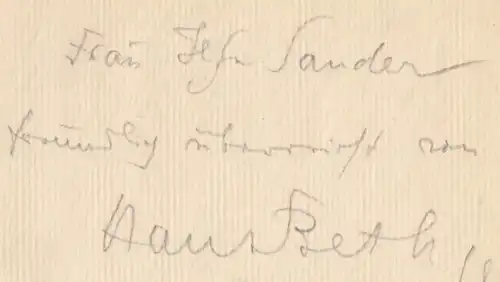 Frau Sander
freundlich überreicht von
Hans Beth